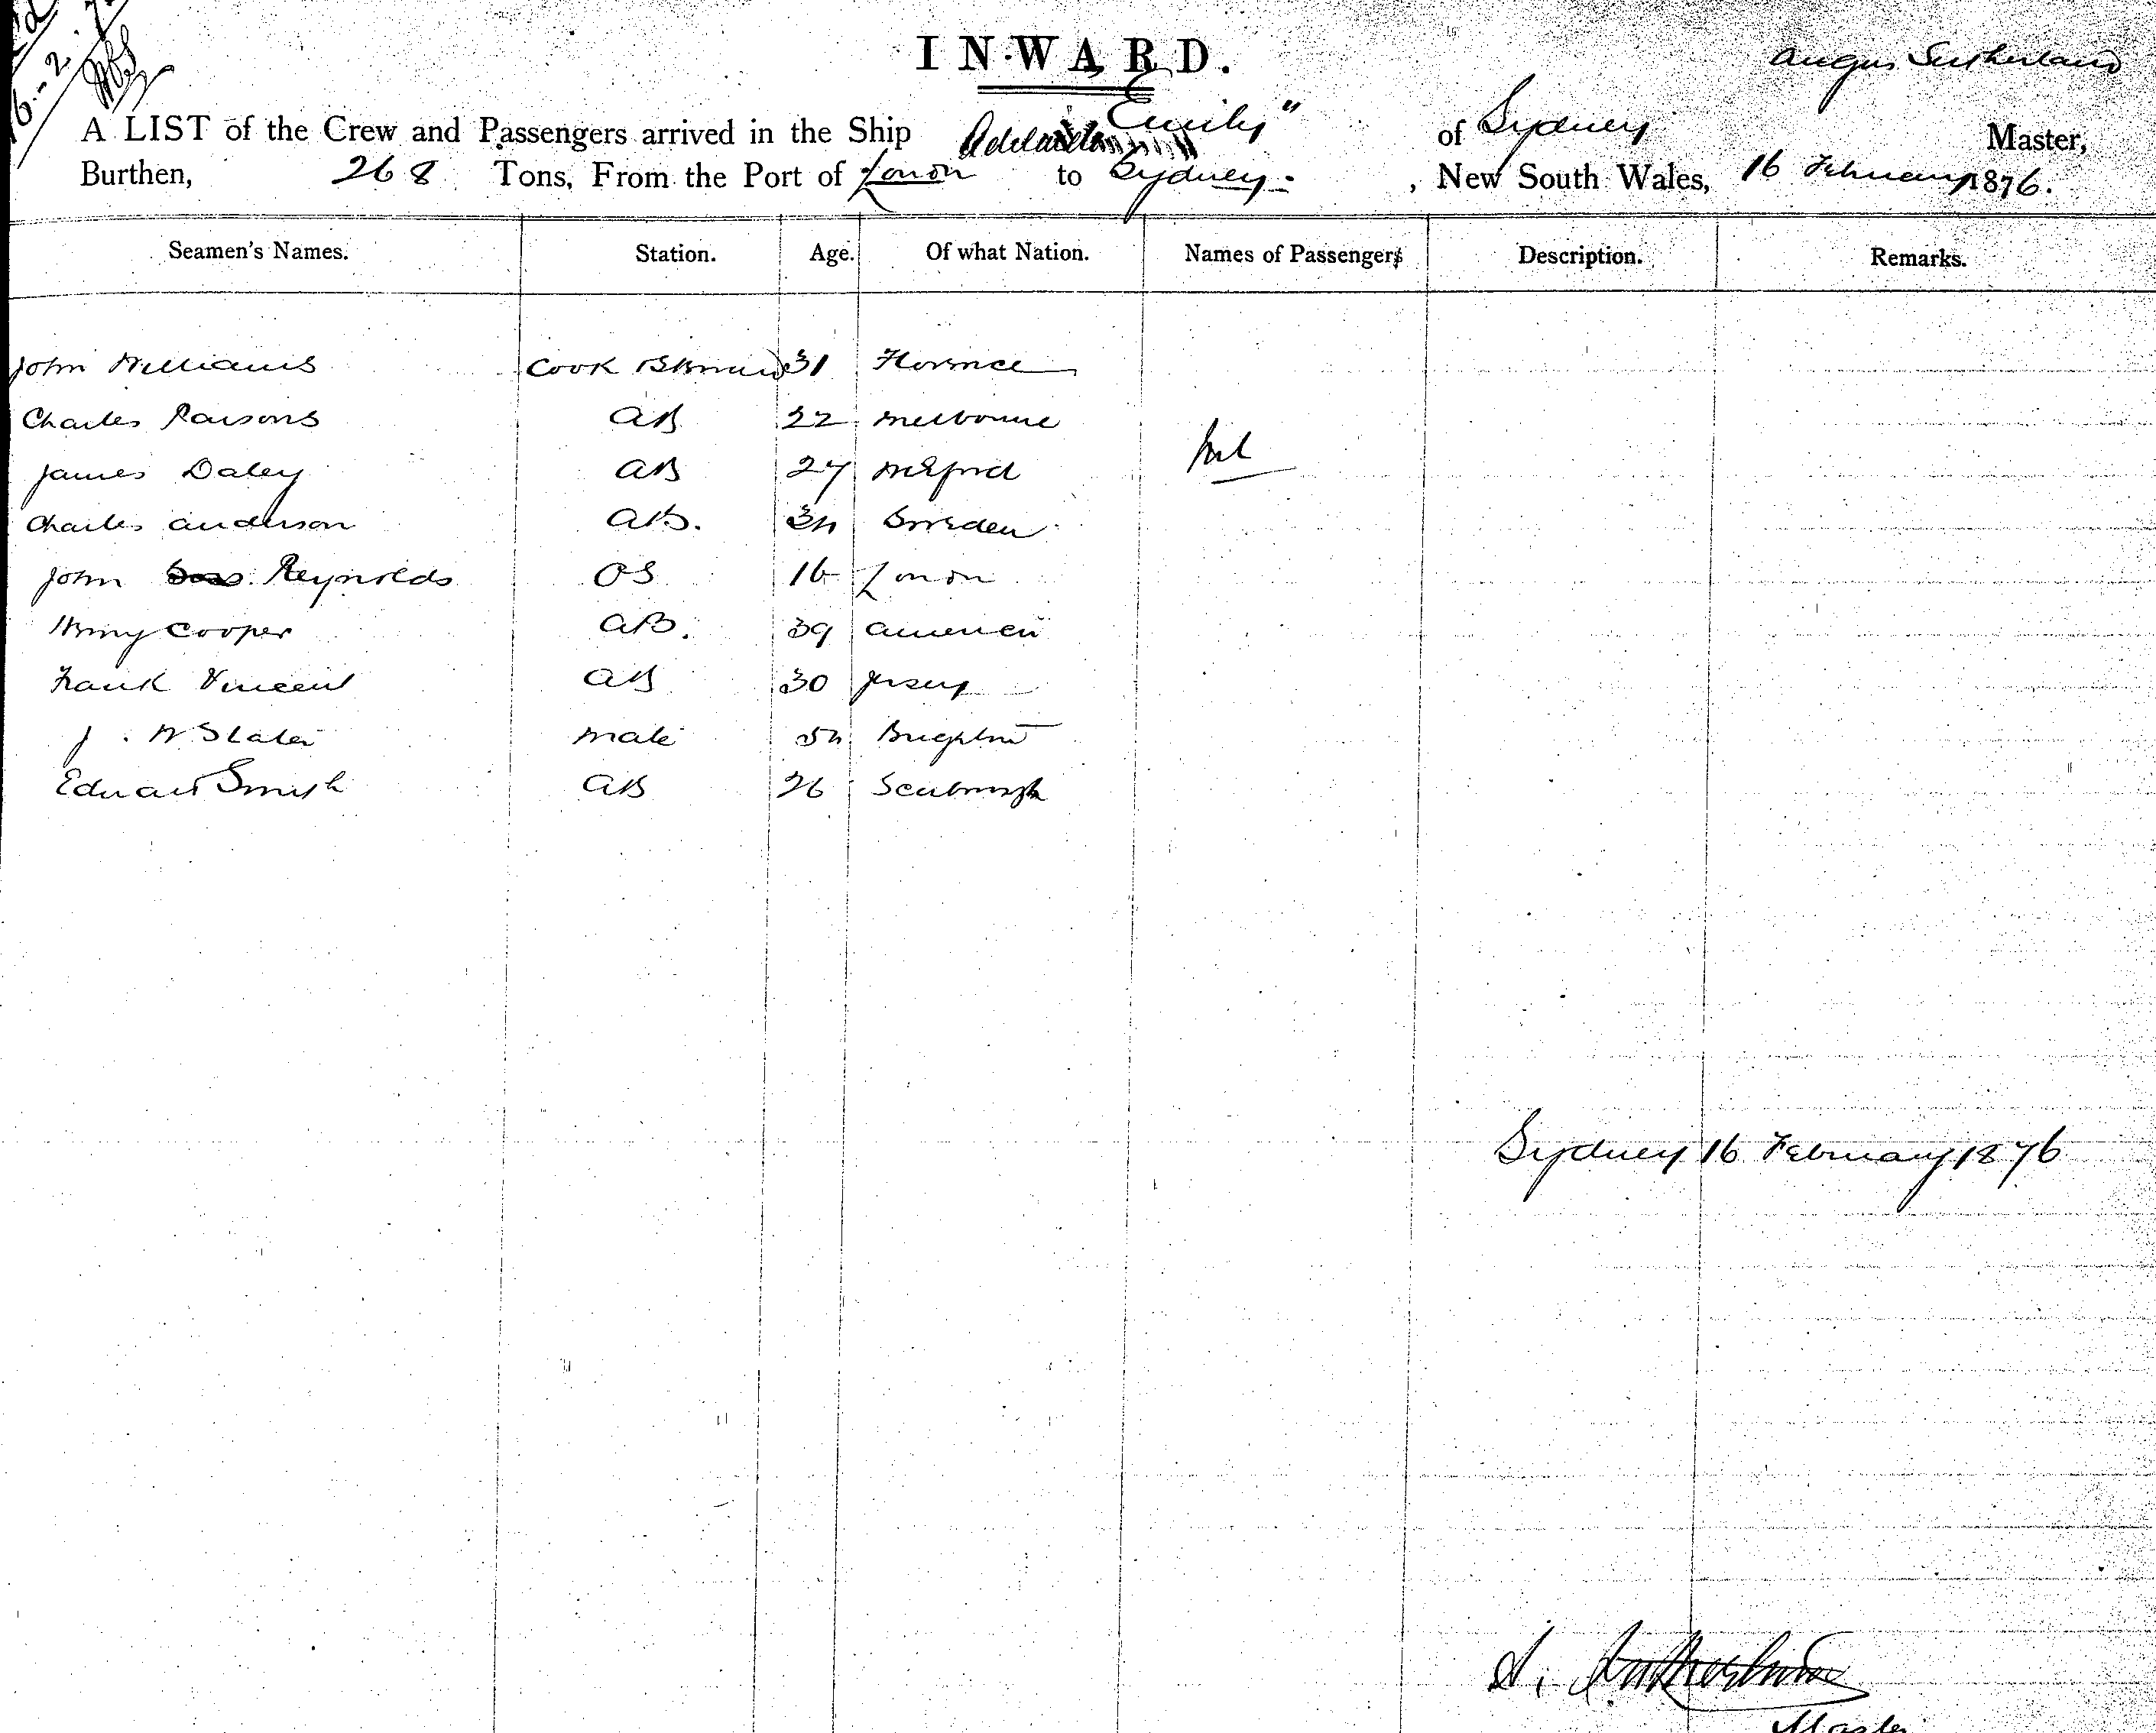 16-2-7
INWARD.
Angus Sutherland
A LIST of the Crew and Passengers arrived in the Ship "Emily" of Sydney Master,
Burthen, 268 Tons, From the Port of London to Sydney. , New South Wales, 16 February 1876.
Seamen's Names. Station. Age. Of what Nation. Names of Passengers Description. Remarks.
John Williams Cook & Steward 31 Florence
Charles Parsons AB 22 Melbourne
James Daley AB 27 Milford Nil
Charles Anderson AB. 34 Sweden
John Reynolds OS 16 London
Henry Cooper AB. 39 America
Frank Vincent AB 30 Jersey
J. W Slater Mate 54 Brighton
Edward Smith AB 26 Scarborough
Sydney 16 February 1876
A. Sutherland
Master